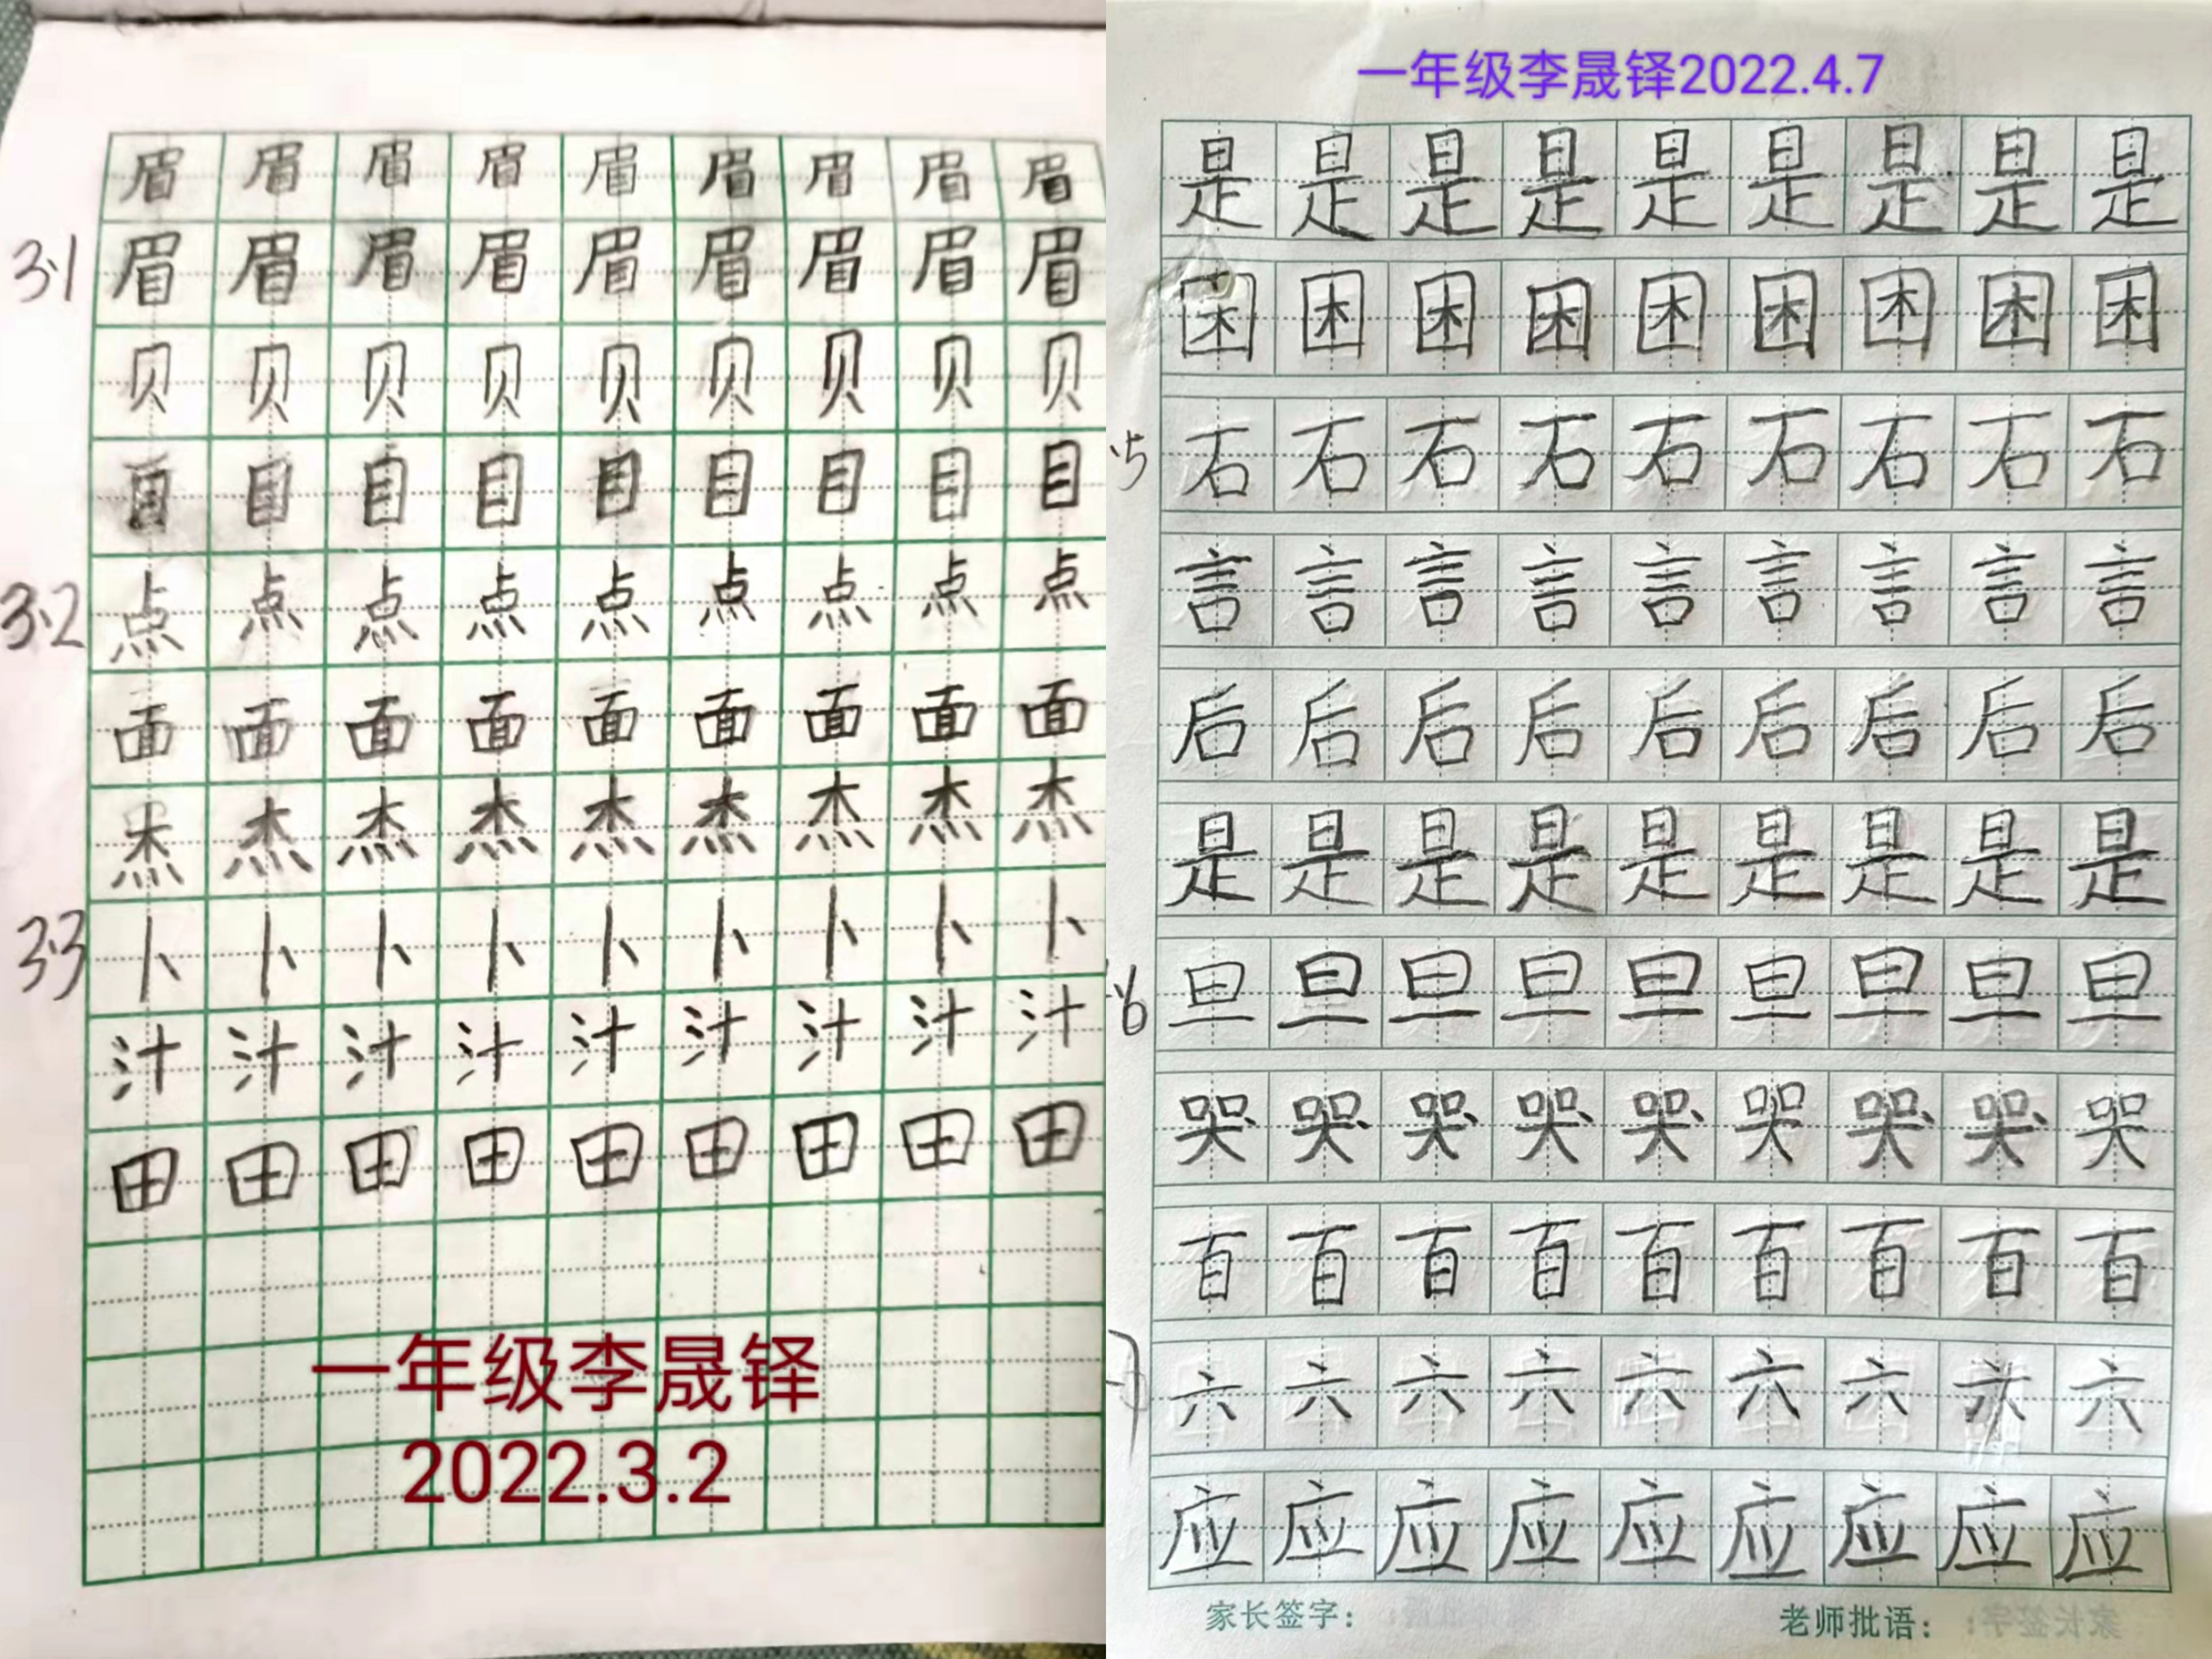 眉眉眉眉眉眉眉眉眉
3.1 眉眉眉眉眉眉眉眉眉
贝贝贝贝贝贝贝贝贝
目目目目目目目目目
3.2 点点点点点点点点点
面面面面面面面面面
杰杰杰杰杰杰杰杰杰
3.3 卜卜卜卜卜卜卜卜卜
汁汁汁汁汁汁汁汁汁
田田田田田田田田田
一年级李晟铎
2022.3.2
一年级李晟铎2022.4.7
是是是是是是是是是
困困困困困困困困困
石石石石石石石石石
言言言言言言言言言
后后后后后后后后后
是是是是是是是是是
旦旦旦旦旦旦旦旦旦
哭哭哭哭哭哭哭哭哭
百百百百百百百百百
六六六六六六六六六
应应应应应应应应应
家长签字： 老师批语：